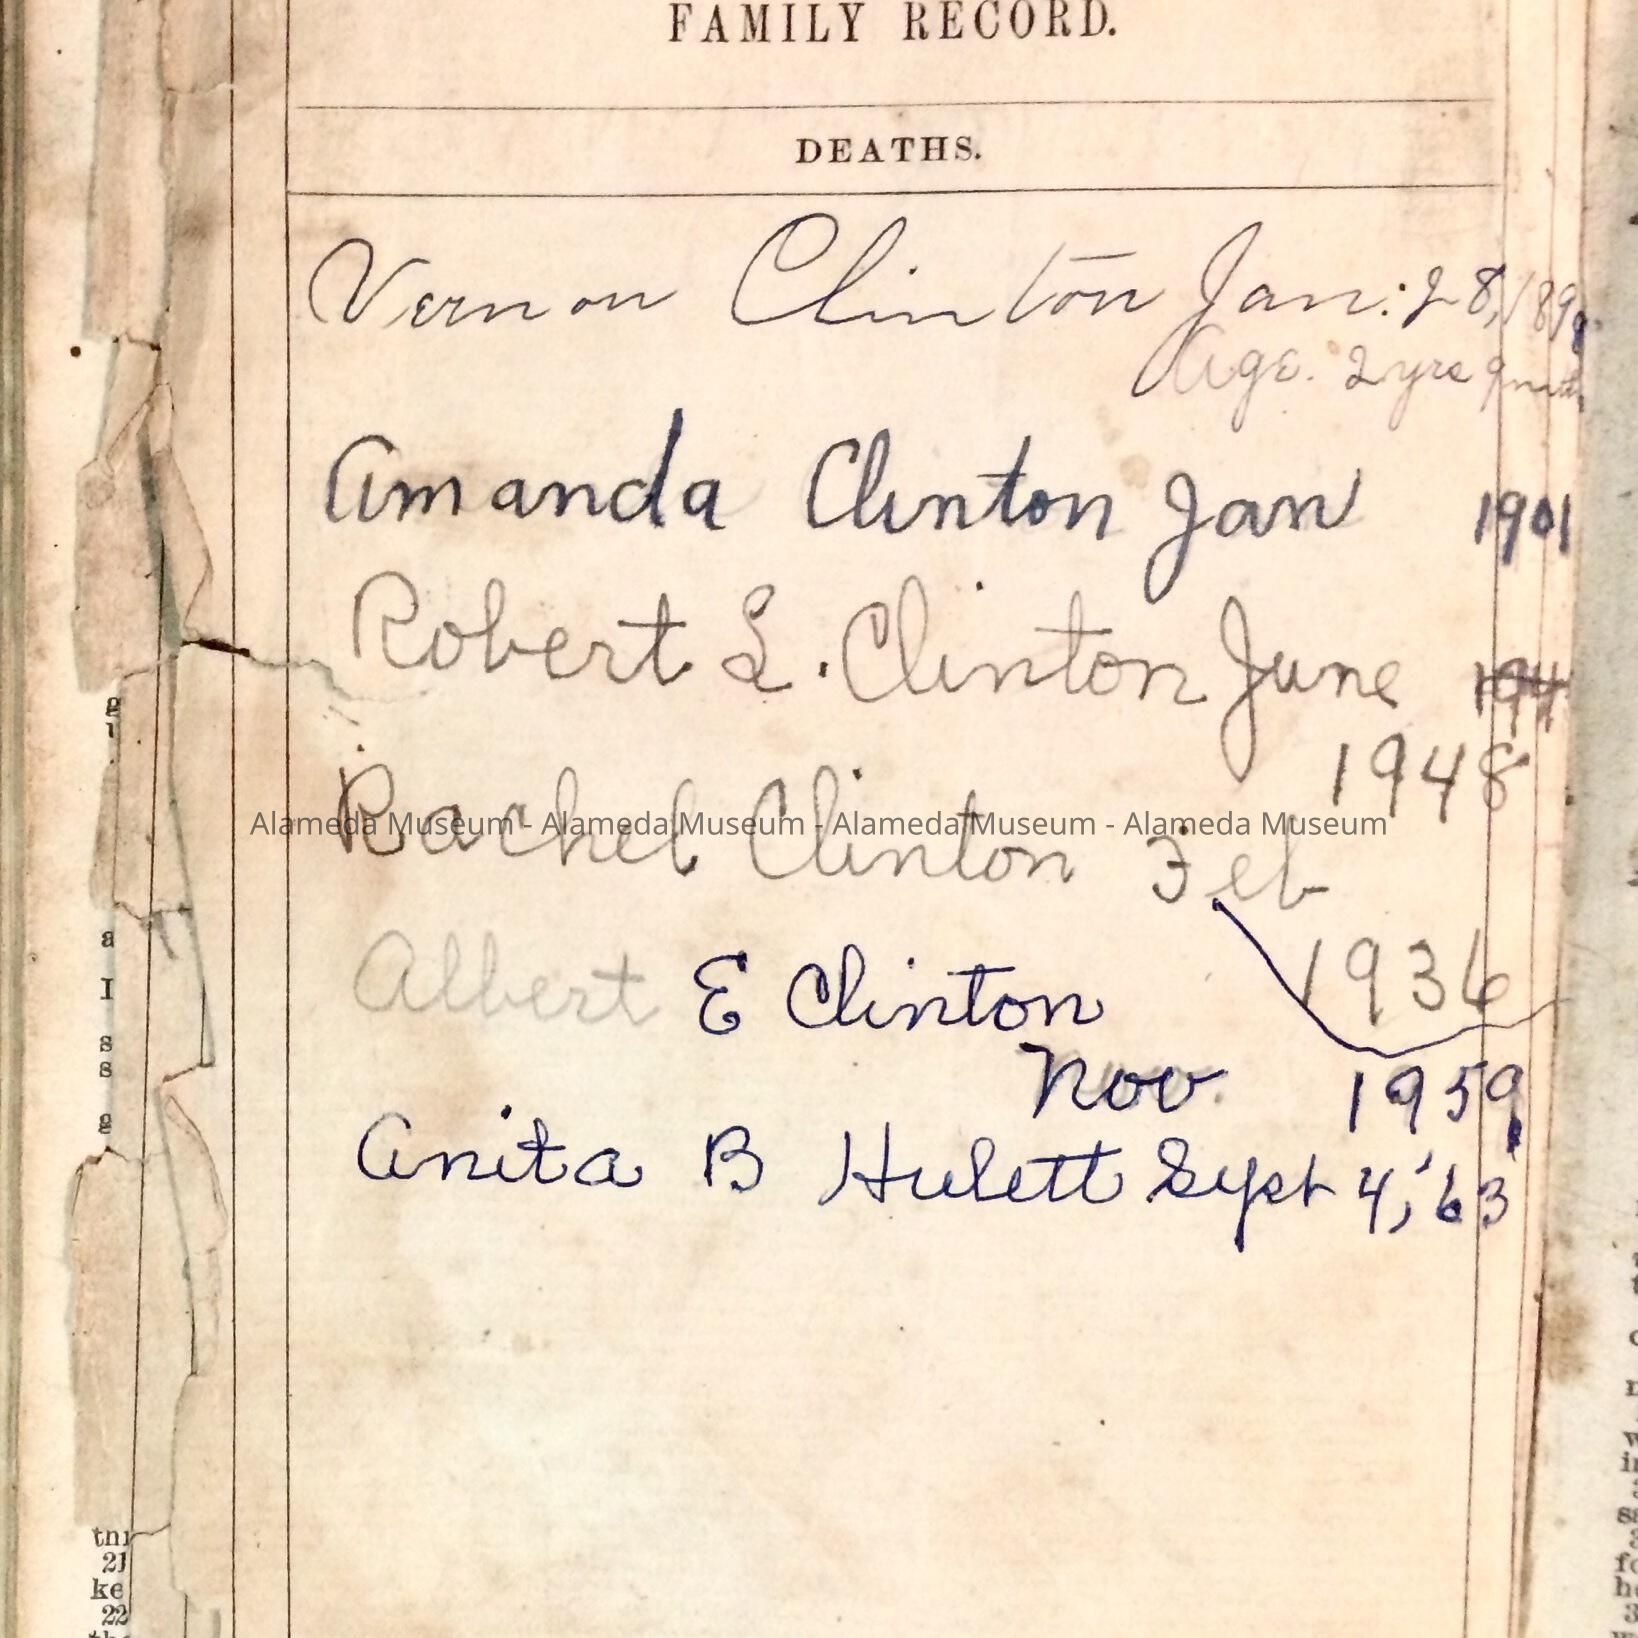 FAMILY RECORD.
DEATHS.
Vernon Clinton Jan. 28, 189
Age. 2 yrs 9 mnth
Amanda Clinton Jan 1901
Robert L. Clinton June
1948
Rachel Clinton Feb
Alameda Museum - Alameda Museum - Alameda Museum - Alameda Museum
1936
Albert E Clinton
Nov. 1959
Anita B Hulett Sept 4, '63
g
a
I
s
s
g
21
ke
22